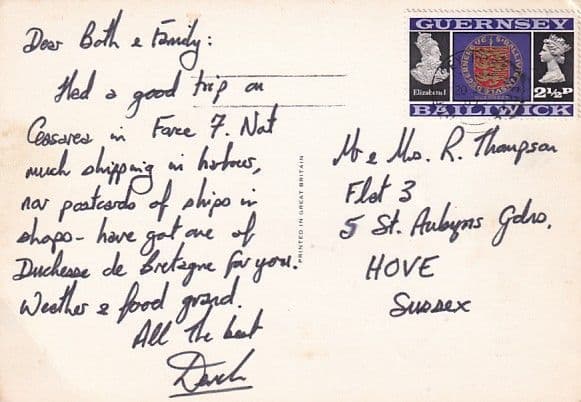 Dear Both & Family:
Had a good trip on
Caesarea in Force 7. Not
much shipping in harbour,
nor postcards of ships in
shops - have got one of
Duchesse de Bretagne for you.
Weather & food grand.
All the best
Derek
PRINTED IN GREAT BRITAIN
GUERNSEY
Elizabeth I
2½P
BAILIWICK
Mr & Mrs. R. Thompson
Flat 3
5 St. Aubyns Gdns.
HOVE
SUSSEX